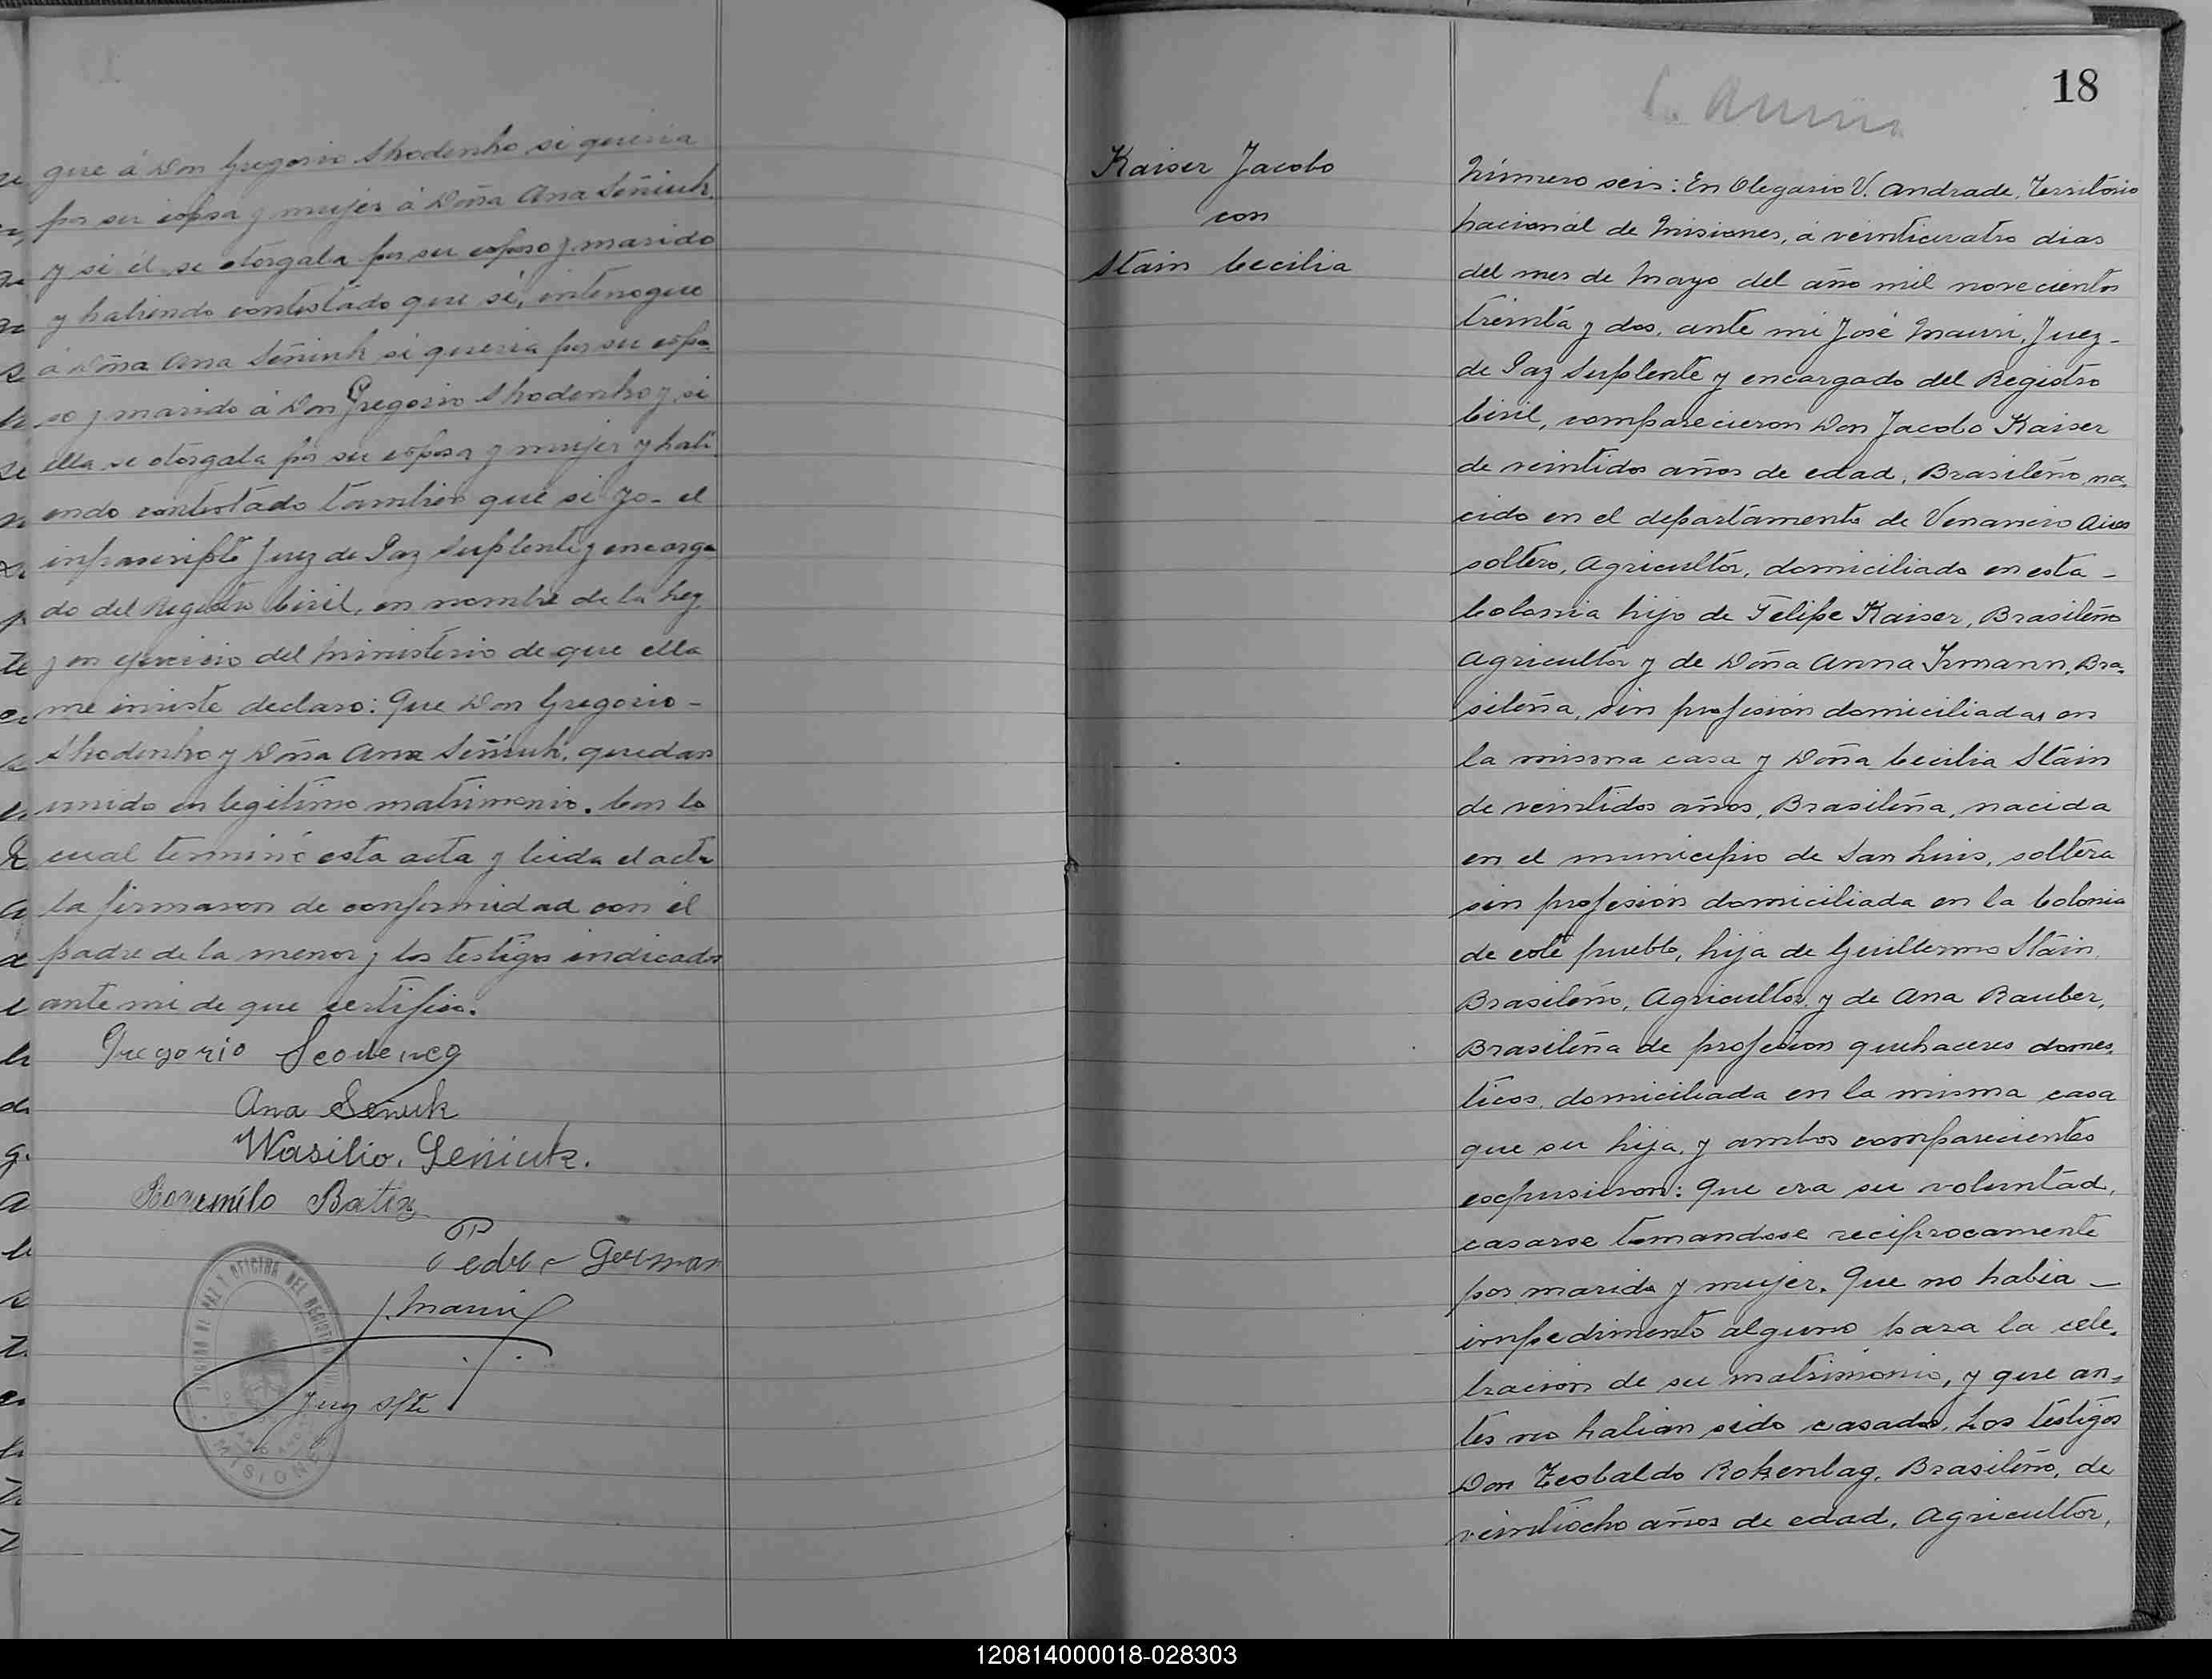 que á Don Gregorio Skodenko si queria
por su esposa y mujer á Doña Ana Señiuk
y si él se otorgaba por su esposo y marido
y habiendo contestado que sí, interrogue
á Doña Ana Señiuk si queria por su espo-
so y marido á Don Gregorio Skodenko y si
ella se otorgaba por su esposa y mujer y habi
endo contestado tambien que si yo - el
infrascripto Juez de Paz Suplente y encarga-
do del Registro Civil, en nombre de la ley
y en ejercicio del ministerio de que ella
me inviste declaro: Que Don Gregorio -
Skodenko y Doña Ana Señiuk, quedan
unido en legitimo matrimonio. Con lo
cual terminó esta acta y leida el acta
la firmaron de conformidad con él
padre de la menor y los testigos indicados
ante mi de que certifico.
Gregorio Scodenco
Ana Señuk
Wasilio. Señiuk.
Batig
Pedro German
J. Mauri
Juez Splte
MISIONES
18
Kaiser Jacobo
con
Stain Cecilia
Número seis: En Olegario V. Andrade, Territorio
nacional de Misiones, á veinticuatro dias
del mes de Mayo del año mil novecientos
treinta y dos, ante mi José Maurri, Juez -
de Paz Suplente y encargado del Registro
Civil, comparecieron Don Jacobo Kaiser
de veintidos años de edad, Brasileño, na-
cido en el departamento de Venancio Aires
soltero, Agricultor, domiciliado en esta -
Colonia hijo de Felipe Kaiser, Brasileño
Agricultor y de Doña Anna Irmann, Bra-
sileña, sin profesión domiciliadas en
la misma casa y Doña Cecilia Stain
de veintidos años, Brasileña, nacida
en el municipio de San Luis, soltera
sin profesión domiciliada en la Colonia
de este pueblo, hija de Guillermo Stain
Brasileño, Agricultor y de Ana Rauber,
Brasileña de profesion quehaceres domes-
ticos, domiciliada en la misma casa
que su hija, y ambos comparecientes
expusieron: Que era su voluntad,
casarse tomandose reciprocamente
por marido y mujer. Que no habia -
impedimento alguno para la cele-
bración de su matrimonio, y que an-
tes no habian sido casados, Los testigos
Don Teobaldo Rokenbag, Brasileño, de
veintiocho años de edad, Agricultor,
120814000018-028303